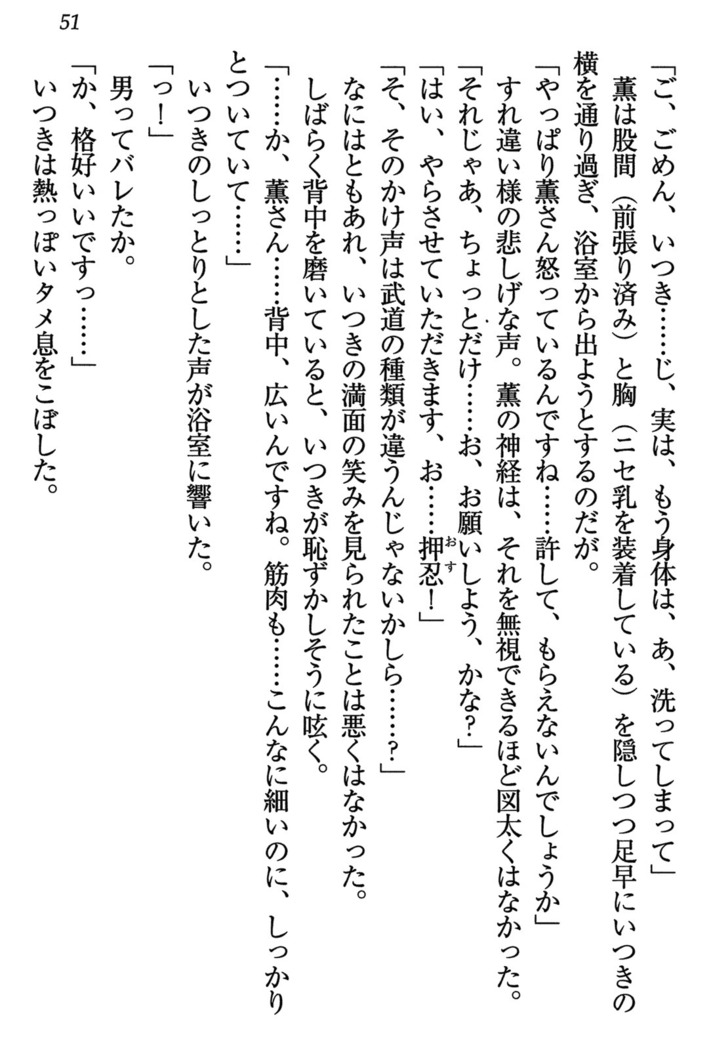 51
「ご、ごめん、いつき……じ、実は、もう身体は、あ、洗ってしまって」
薫は股間（前張り済み）と胸（ニセ乳を装着している）を隠しつつ足早にいつきの
横を通り過ぎ、浴室から出ようとするのだが。
「やっぱり薫さん怒っているんですね……許して、もらえないんでしょうか」
すれ違い様の悲しげな声。薫の神経は、それを無視できるほど図太くはなかった。
「それじゃあ、ちょっとだけ……お、お願いしよう、かな？」
「はい、やらさせていただきます、お……押忍！」
「そ、そのかけ声は武道の種類が違うんじゃないかしら……？」
なにはともあれ、いつきの満面の笑みを見られたことは悪くはなかった。
しばらく背中を磨いていると、いつきが恥ずかしそうに呟く。
「……か、薫さん……背中、広いんですね。筋肉も……こんなに細いのに、しっかり
とついていて……」
いつきのしっとりとした声が浴室に響いた。
「っ！」
男ってバレたか。
「か、格好いいですっ……」
いつきは熱っぽいタメ息をこぼした。